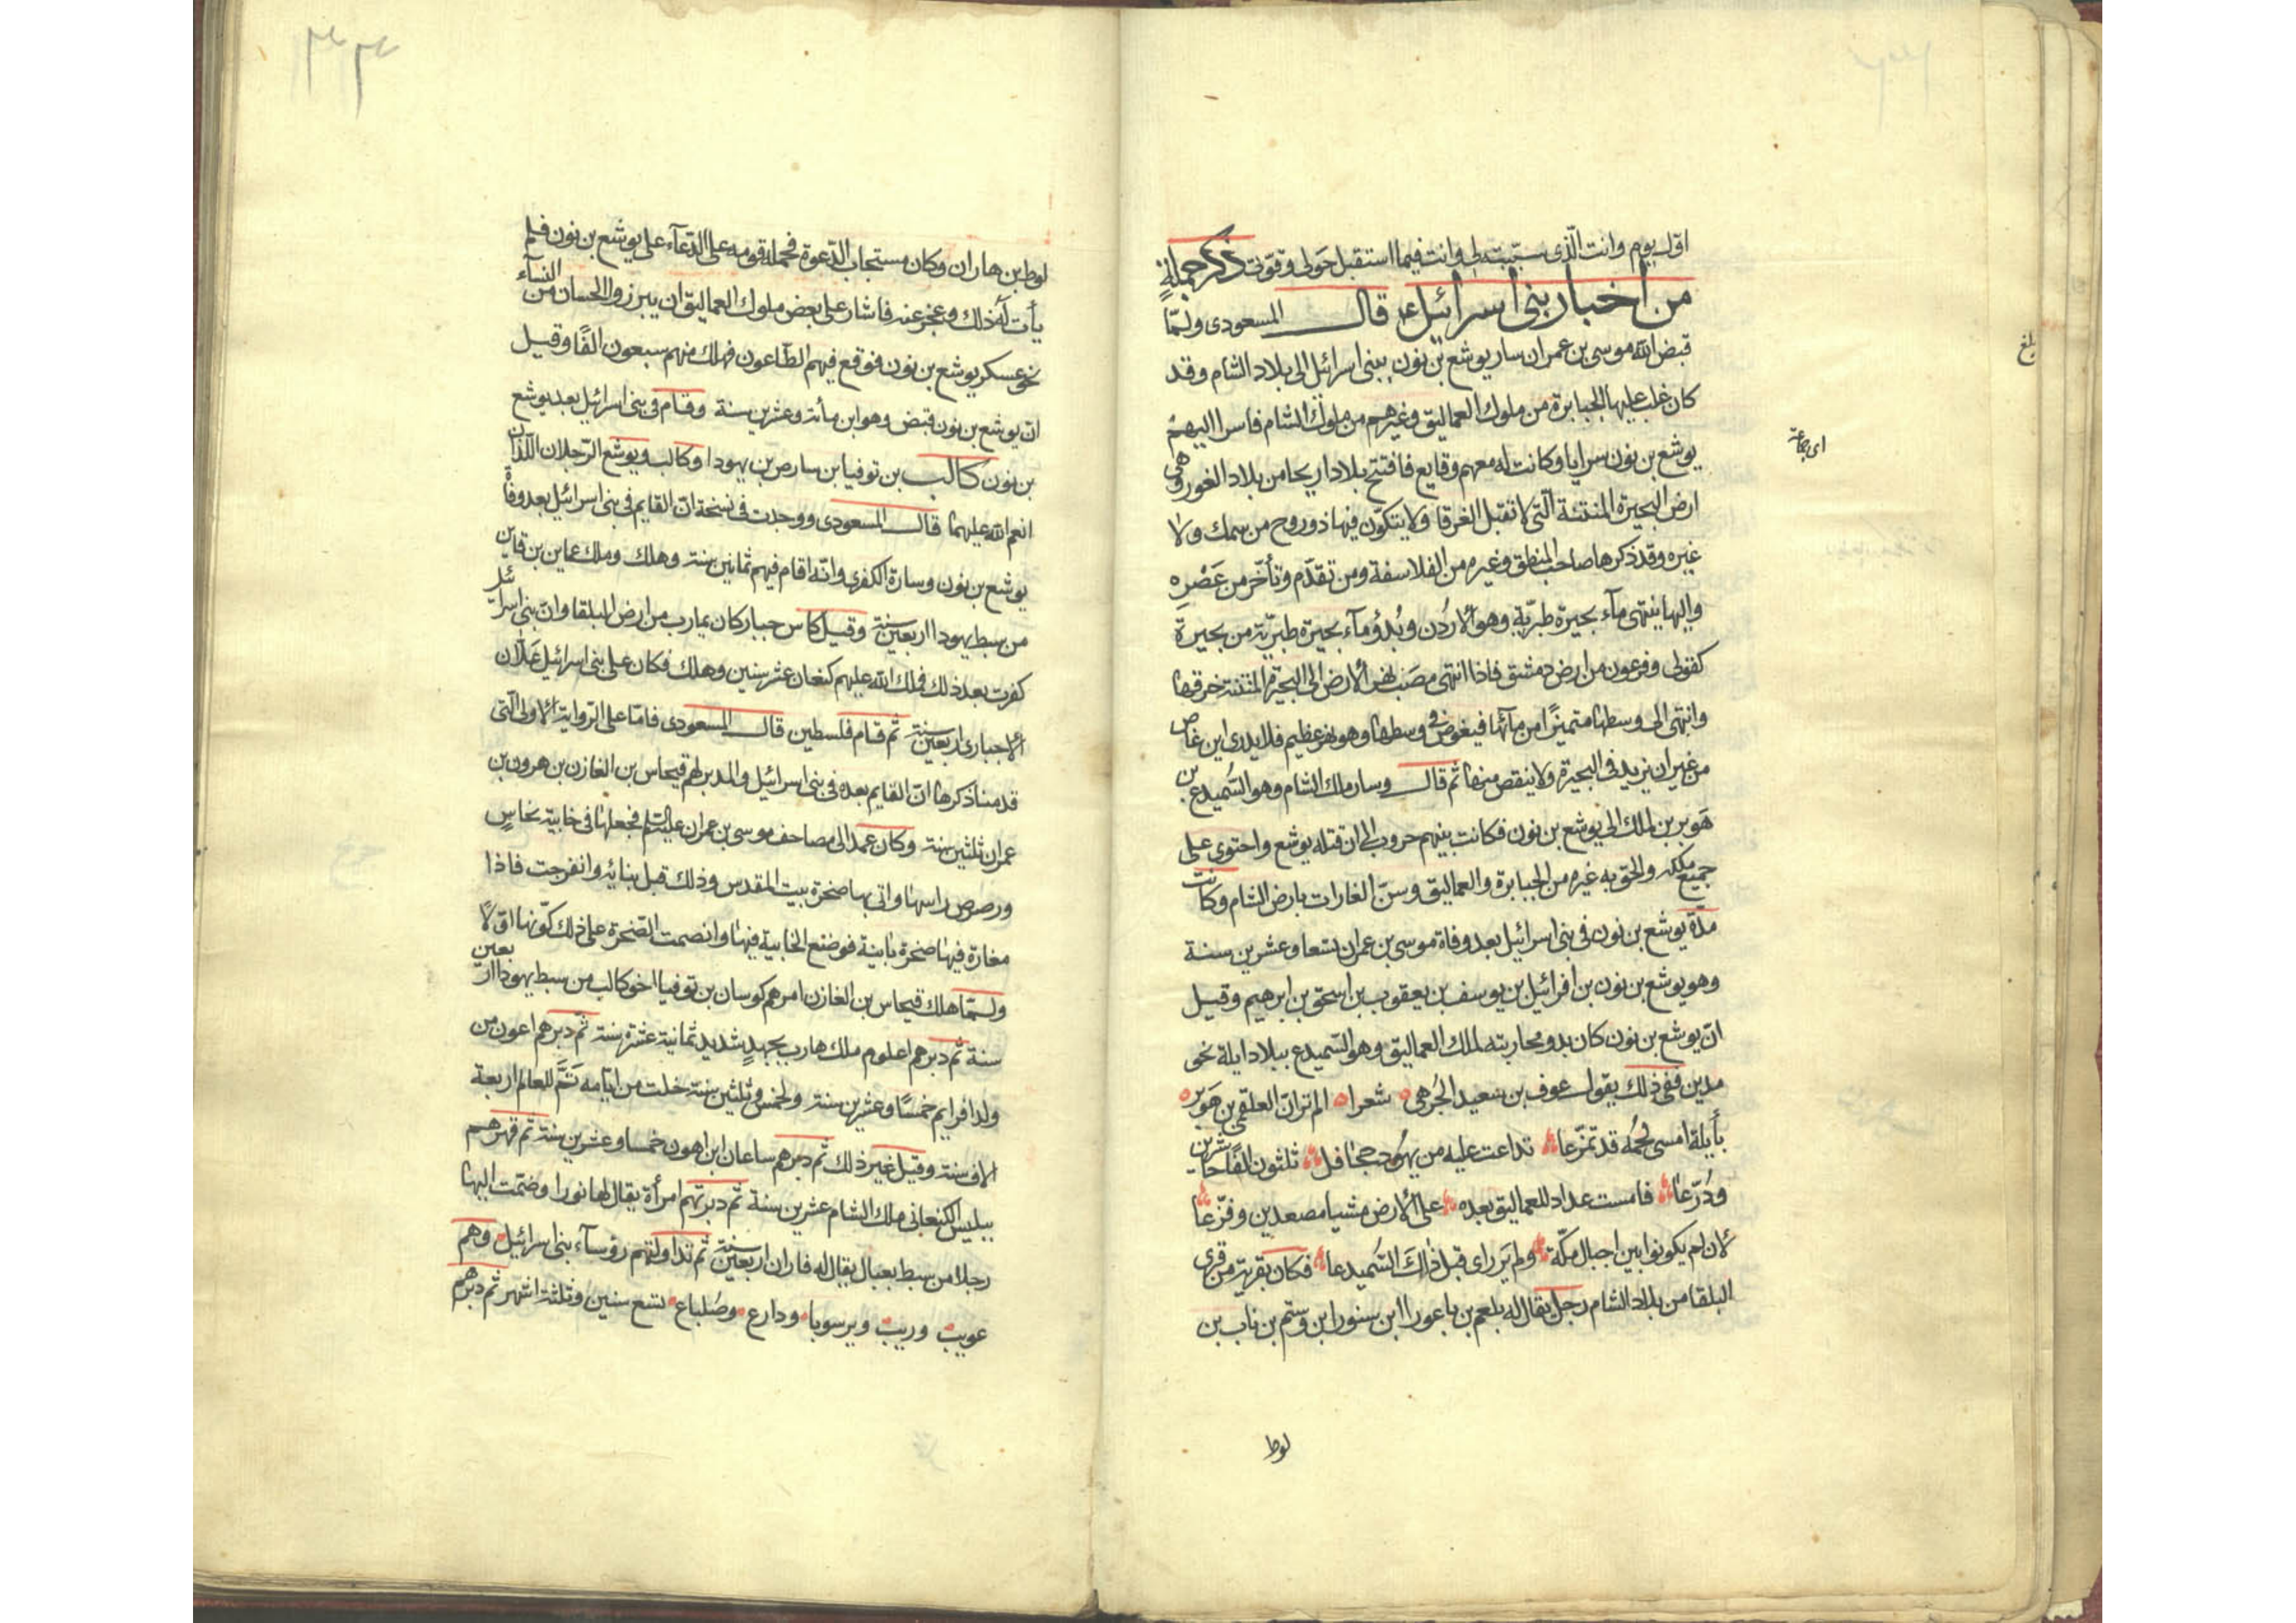 اول يوم وانت الّذى سبّبته لى وانت فيما استقبل حَولى وقوّتى ذكر جملةٍ
من اخبار بنى اسرائيل قال المسعودى ولمّا
قبض الله موسى بن عمران سار يوشع بن نون ببنى اسرائيل الى بلاد الشام وقد
كان غلب عليها الجبابرة من ملوك العماليق وغيرهم من ملوك الشام فاسرا اليهم
يوشع بن نون سرايا وكانت له معهم وقايع فافتتح بلاد اريحا من بلاد الغور وهى
ارض البحيرة المنتنة الّتى لا تقبل الغرقا ولا يتكوّن فيها ذو روح من سمك ولا
غيره وقد ذكرها صاحب المنطق وغيره من الفلاسفة ومن تقدّم وتأخّر من عَصْرِه
واليها ينتهى مآء بحيرة طبريّة وهو الأردُن وبُدؤ مآء بحيرة طبريّة من بحيرة
كفولى وفرعون من ارض دمشق فاذا انتهى مصَب نهر الأرض الى البحيرة المنتنة خرقها
وانتهى الى وسطها متميزًا من مآئها فيغوض فى وسطها وهو نهر عظيم فلا يدرى اين غاص
من غير ان يزيد فى البحيرة ولا ينقص منها ثم قال وسار ملك الشام وهو السُّميدع بن
هَوبر بن ملك الى يوشع بن نون فكانت بينهم حروب الى ان قتله يوشع واحتوى على
جميع ملكه والحق به غيره من الجبابرة والعماليق وسنّ الغارات بارض الشام وكانت
مدّة يوشع بن نون فى بنى اسرائيل بعد وفاة موسى بن عمران تسعا وعشرين سنة
وهو يوشع بن نون بن افرائيل بن يوسف بن يعقوب بن اسحق بن ابرهيم وقيل
انّ يوشع بن نون كان بدو محاربته لملك العماليق وهو السّميدع ببلاد ايلة نحو
مدين ففى ذلك يقول عوف بن سعيد الجُرهمى شعرا الم تر انّ العلقمى بن هَوبر
بأيلة امسى لحمُه قد تمزّعا تداعت عليه من يهُود جحافل ثلثون الفًا حاشرين
ودُرّعا فامست عداد للعماليق بعده على الأرض مشيا مصعدين وفزّعا
لأن لم يكونوا بين اجبال مكّة ولم يَر راى قبل ذاكَ السُّميدعا فكان بقرية من قرى
البلقا من بلاد الشام رجل يقال له بلعم بن باعورا ابن سنور ابن وسّم بن ناب بن
لوط
اى جماعة
بلغ
لوط بن هاران وكان مستجاب الدّعوة فحمله قومه على الدّعآء على يوشع بن نون فلم
يأت له ذلك وعجز عنه فاشار على بعض ملوك العماليق ان يبرزوا الحسان من النسآء
نحو عسكر يوشع بن نون فوقع فيهم الطّاعون فهلك منهم سبعون الفًا وقيل
انّ يوشع بن نون قبض وهو ابن مأئة وعشرين سنة وقام فى بنى اسرائيل بعد يوشع
بن نون كالب بن توفيا بن سارص بن يهودا وكالب ويوشع الرّجلان اللّذان
انعم الله عليهما قال المسعودى ووجدت فى نسخة انّ القايم فى بنى اسرائيل بعد وفاة
يوشع بن نون وسارة الكفرى وانّه اقام فيهم ثمانين سنة وهلك وملك عماين بن قاين
من سبط يهودا اربعين سنة وقيل كاس جبار كان يمارب من ارض البلقا وانّ بنى اسرائيل
كفرت بعد ذلك فملك الله عليهم كنعان عشر سنين وهلك فكان على بنى اسرائيل عَملان
الاحبارى اربعين سنة ثم قام فلسطين قال المسعودى فامّا على الرّواية الاولى الّتى
قدمنا ذكرها انّ القايم بعده فى بنى اسرائيل والمدبر لهم فيحاس بن الغازن بن هرون بن
عمران ثلثين سنة وكان عمد الى مصاحف موسى بن عمران عليه السّلم فجعلها فى خابية نحاسٍ
ورصرص راسها واتى بها صخرة بيت المقدس وذلك قبل بنائه وانفرجت فاذا
مغارة فيها صخرة ثانية فوضع الخابية فيها وانصمت الصّخرة على ذلك كوّنها اوّلاً
ولـمّا هلك فيحاس بن الغازن امرهم كوسان بن توفيا اخو كالب من سبط يهودا اربعين
سنة ثم دبرهم اعلوم ملك هارب بجهدٍ شديد ثمانية عشرة سنة ثم دبرهم اعون من
ولد افرايم خمسًا وعشرين سنة ولخمس وثلثين سنة خلت من ايّامه تَمَّ للعالم اربعة
الاف سنة وقيل غير ذلك ثم دبرهم ساعان ابن اهون خمسا وعشرين سنة ثم قهرهم
بيليس الكنعانى ملك الشام عشرين سنة ثم دبرتهم امرأة يقال لها نورا وضمّت اليها
رجلا من سبط بعبال يقال له فاران اربعين سنة ثم تداولتهم رؤسآء بنى اسرائيل وهم
عويب وريب وبرسوبا ودارع وصُلباع تسع سنين وثلثة اشهر ثم دبرهم